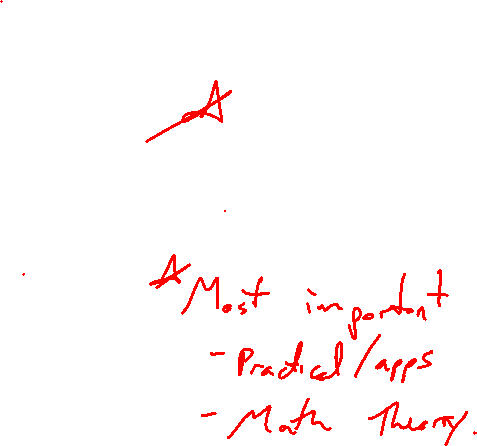 Most important
- Practical/apps
- Math Theory.